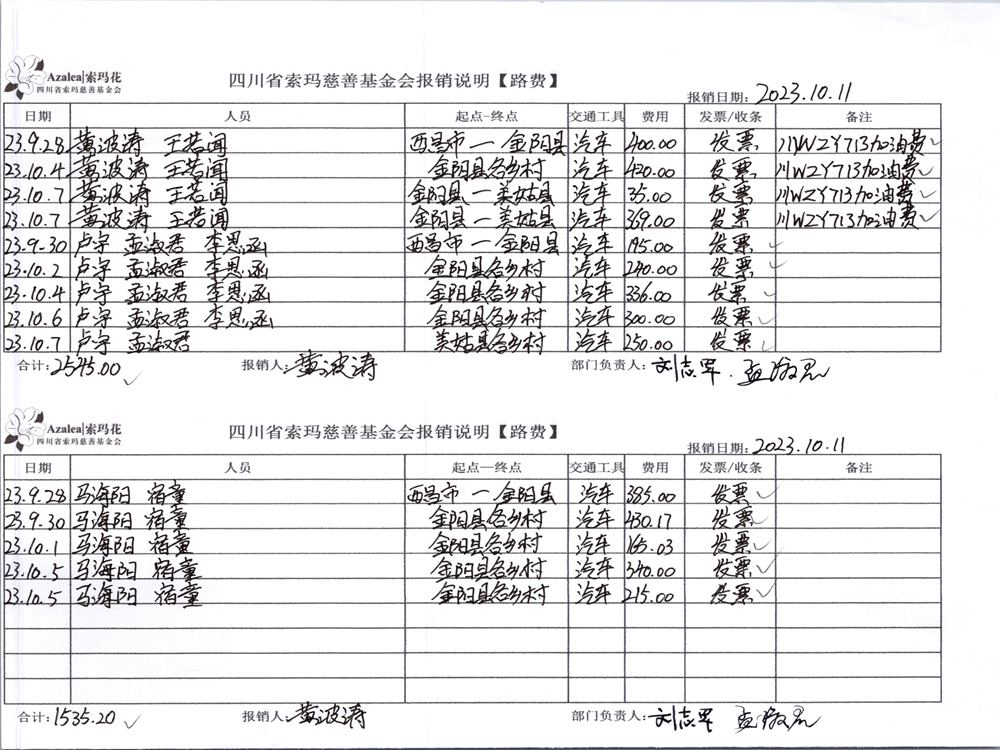 Azalea|索玛花
四川省索玛慈善基金会
四川省索玛慈善基金会报销说明【路费】
报销日期: 2023.10.11
日期 人员 起点-终点 交通工具 费用 发票/收条 备注
23.9.28 黄波涛 王若闻 西昌市 — 金阳县 汽车 400.00 发票 川WZY713加油费
23.10.4 黄波涛 王若闻 金阳县各乡村 汽车 420.00 发票 川WZY713加油费
23.10.7 黄波涛 王若闻 金阳县 — 美姑县 汽车 35.00 发票 川WZY713加油费
23.10.7 黄波涛 王若闻 金阳县 — 美姑县 汽车 369.00 发票 川WZY713加油费
23.9.30 卢宇 孟淑君 李思函 西昌市 — 金阳县 汽车 195.00 发票
23.10.2 卢宇 孟淑君 李思函 金阳县各乡村 汽车 240.00 发票
23.10.4 卢宇 孟淑君 李思函 金阳县各乡村 汽车 336.00 发票
23.10.6 卢宇 孟淑君 李思函 金阳县各乡村 汽车 300.00 发票
23.10.7 卢宇 孟淑君 美姑县各乡村 汽车 250.00 发票
合计: 2545.00 报销人: 黄波涛 部门负责人: 刘志军.
Azalea|索玛花
四川省索玛慈善基金会
四川省索玛慈善基金会报销说明【路费】
报销日期: 2023.10.11
日期 人员 起点—终点 交通工具 费用 发票/收条 备注
23.9.28 马海阳 宿童 西昌市 — 金阳县 汽车 385.00 发票
23.9.30 马海阳 宿童 金阳县各乡村 汽车 430.17 发票
23.10.1 马海阳 宿童 金阳县各乡村 汽车 165.03 发票
23.10.5 马海阳 宿童 金阳县各乡村 汽车 340.00 发票
23.10.5 马海阳 宿童 金阳县各乡村 汽车 215.00 发票
合计: 1535.20 报销人: 黄波涛 部门负责人: 刘志军